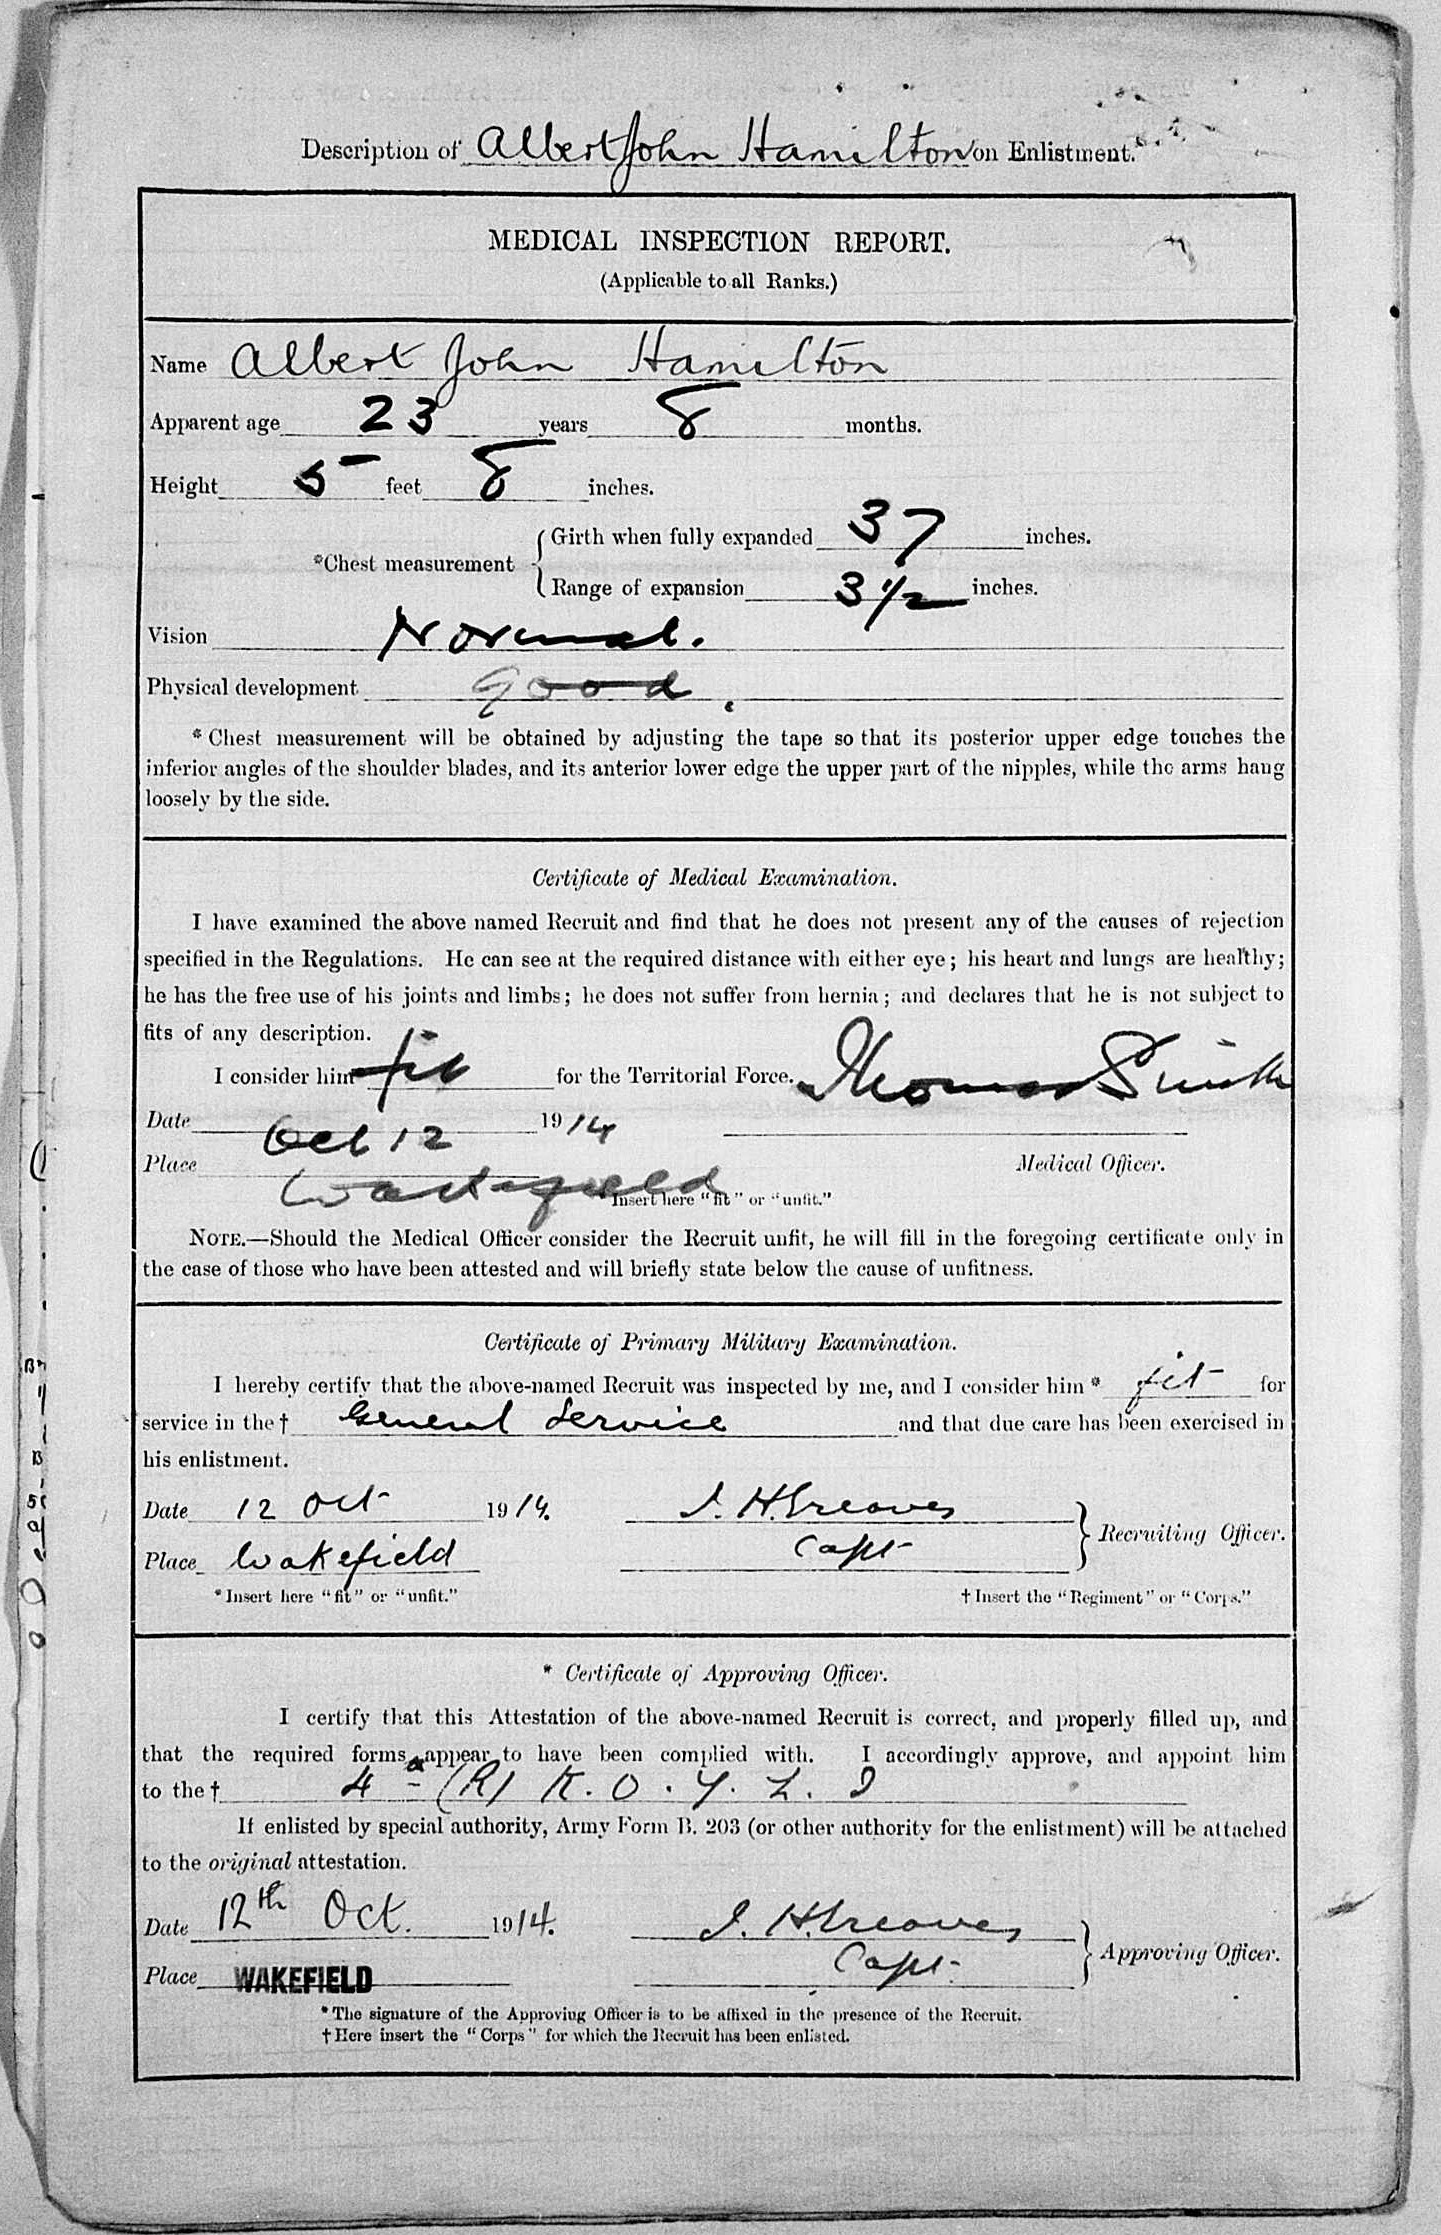 Description of Albert John Hamilton on Enlistment.
MEDICAL INSPECTION REPORT.
(Applicable to all Ranks.)
Name Albert John Hamilton
Apparent age 23 years 8 months.
Height 5 feet 8 inches.
*Chest measurement { Girth when fully expanded 37 inches.
Range of expansion 3 1/2 inches.
Vision Normal.
Physical development good.
* Chest measurement will be obtained by adjusting the tape so that its posterior upper edge touches the
inferior angles of the shoulder blades, and its anterior lower edge the upper part of the nipples, while the arms hang
loosely by the side.
Certificate of Medical Examination.
I have examined the above named Recruit and find that he does not present any of the causes of rejection
specified in the Regulations. He can see at the required distance with either eye; his heart and lungs are healthy;
he has the free use of his joints and limbs; he does not suffer from hernia; and declares that he is not subject to
fits of any description.
I consider him fit for the Territorial Force. Thomas Smith
Date Oct 12 1914
Place Wakefield Medical Officer.
*Insert here "fit" or "unfit."
NOTE.—Should the Medical Officer consider the Recruit unfit, he will fill in the foregoing certificate only in
the case of those who have been attested and will briefly state below the cause of unfitness.
Certificate of Primary Military Examination.
I hereby certify that the above-named Recruit was inspected by me, and I consider him * fit for
service in the † General Service and that due care has been exercised in
his enlistment.
Date 12 Oct 1914. J. H. Greaves
Place Wakefield Capt } Recruiting Officer.
*Insert here "fit" or "unfit." † Insert the "Regiment" or "Corps."
* Certificate of Approving Officer.
I certify that this Attestation of the above-named Recruit is correct, and properly filled up, and
that the required forms appear to have been complied with. I accordingly approve, and appoint him
to the † 4 (R) K. O. Y. L. I
If enlisted by special authority, Army Form B. 203 (or other authority for the enlistment) will be attached
to the original attestation.
Date 12th Oct. 1914. J. H. Greaves
Place WAKEFIELD Capt. } Approving Officer.
*The signature of the Approving Officer is to be affixed in the presence of the Recruit.
† Here insert the "Corps" for which the Recruit has been enlisted.